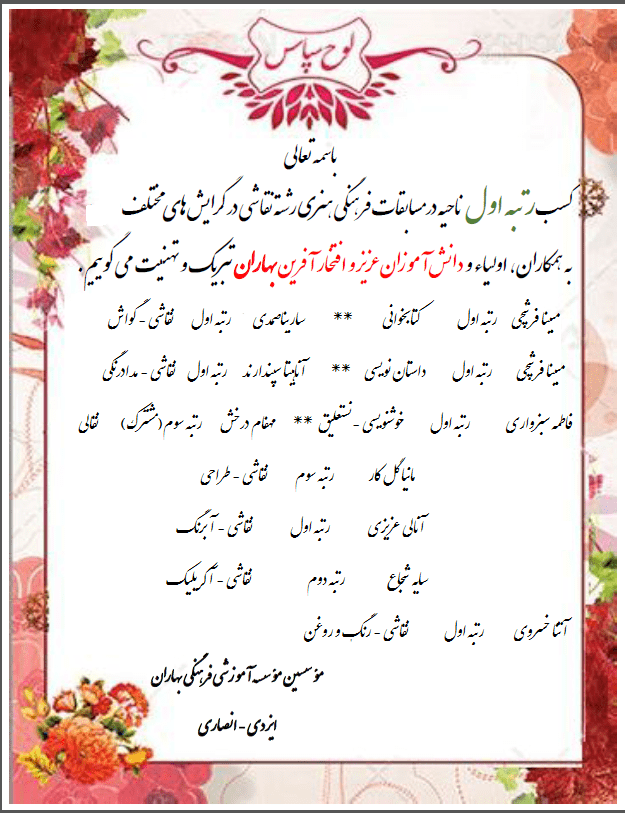 لوح سپاس
باسمه تعالی
کسب رتبه اول ناحیه در مسابقات فرهنگی هنری رشته نقاشی در گرایش های مختلف
به همکاران، اولیاء و دانش آموزان عزیز و افتخار آفرین بهاران تبریک و تهنیت می گوییم.
مبینا فرشچی رتبه اول کتابخوانی ** سارینا صمدی رتبه اول نقاشی - گواش
مبینا فرشچی رتبه اول داستان نویسی ** آناهیتا سپندارند رتبه اول نقاشی - مدادرنگی
فاطمه سبزواری رتبه اول خوشنویسی - نستعلیق ** مهفام درخش رتبه سوم (مشترک) نقالی
مانیا گل کار رتبه سوم نقاشی - طراحی
آنالی عزیزی رتبه اول نقاشی - آبرنگ
سایه شجاع رتبه دوم نقاشی - آکریلیک
آتنا خسروی رتبه اول نقاشی - رنگ و روغن
مؤسسین مؤسسه آموزشی فرهنگی بهاران
ایزدی - انصاری